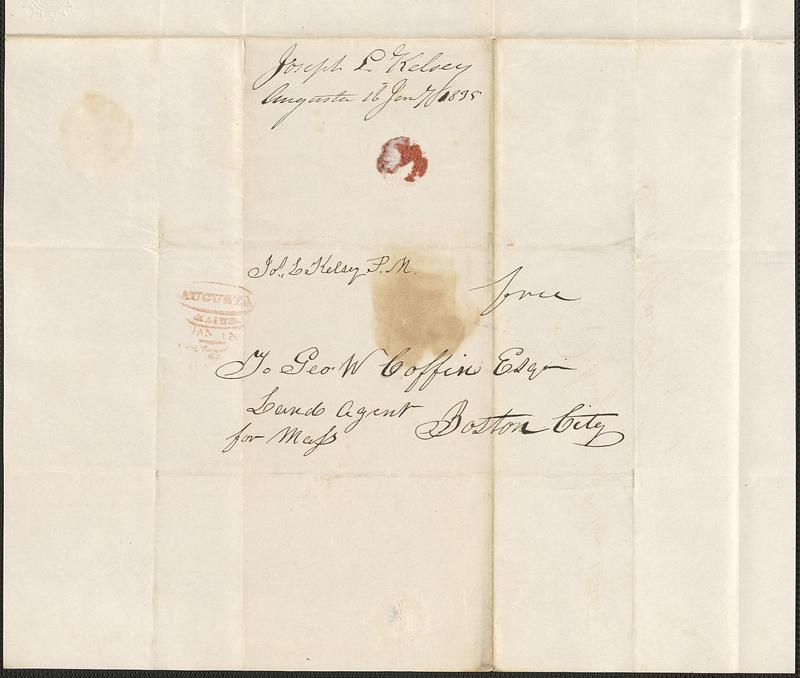 Joseph L Kelsey
Augusta 16 Jany 1835
Jos. L Kelsey P.M.
free
AUGUSTA
MAINE
JAN 16
To Geo. W Coffin Esqr
Land Agent
for Mass
Boston City